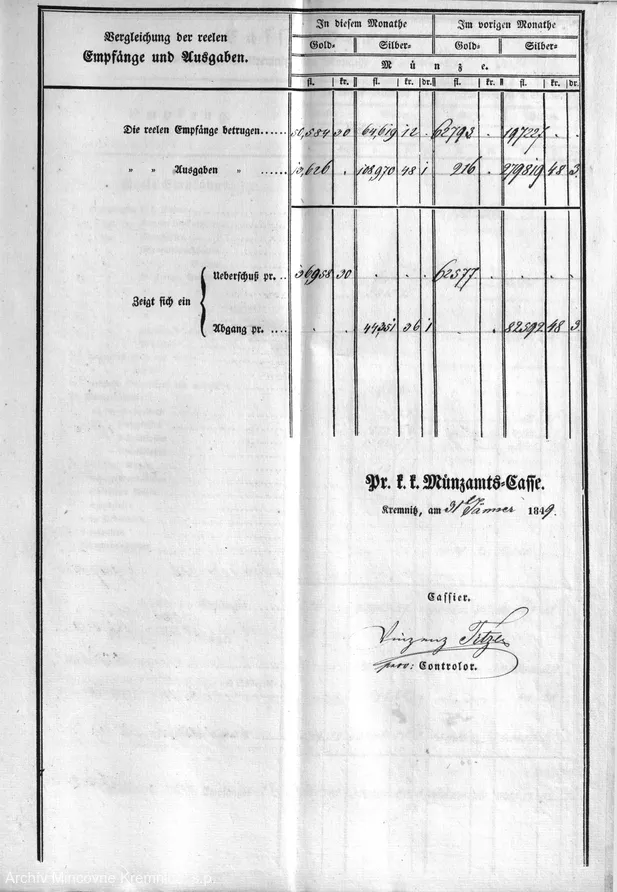 Vergleichung der reelen
Empfänge und Ausgaben.
In diesem Monathe Im vorigen Monathe
Gold- Silber- Gold- Silber-
Münze.
fl. kr. fl. kr. dr. fl. kr. fl. kr. dr.
Die reelen Empfänge betrugen...... 50,584 30 64,619 12 . 62793 . 197227 . .
" " Ausgaben " . ..... 13,626 . 108970 48 1 216 . 279819 48 3.
Ueberschuß pr. .. 36958 30 . . . 62577 . . . .
Zeigt sich ein
Abgang pr. .... . . 44,351 36 1 . . 82592 48 3.
Pr. k. k. Münzamts-Casse.
Kremnitz, am 31tn Jänner 1849.
Cassier.
Vinzenz
prov: Controlor.
Archív Mincovne Kremnica, š.p.